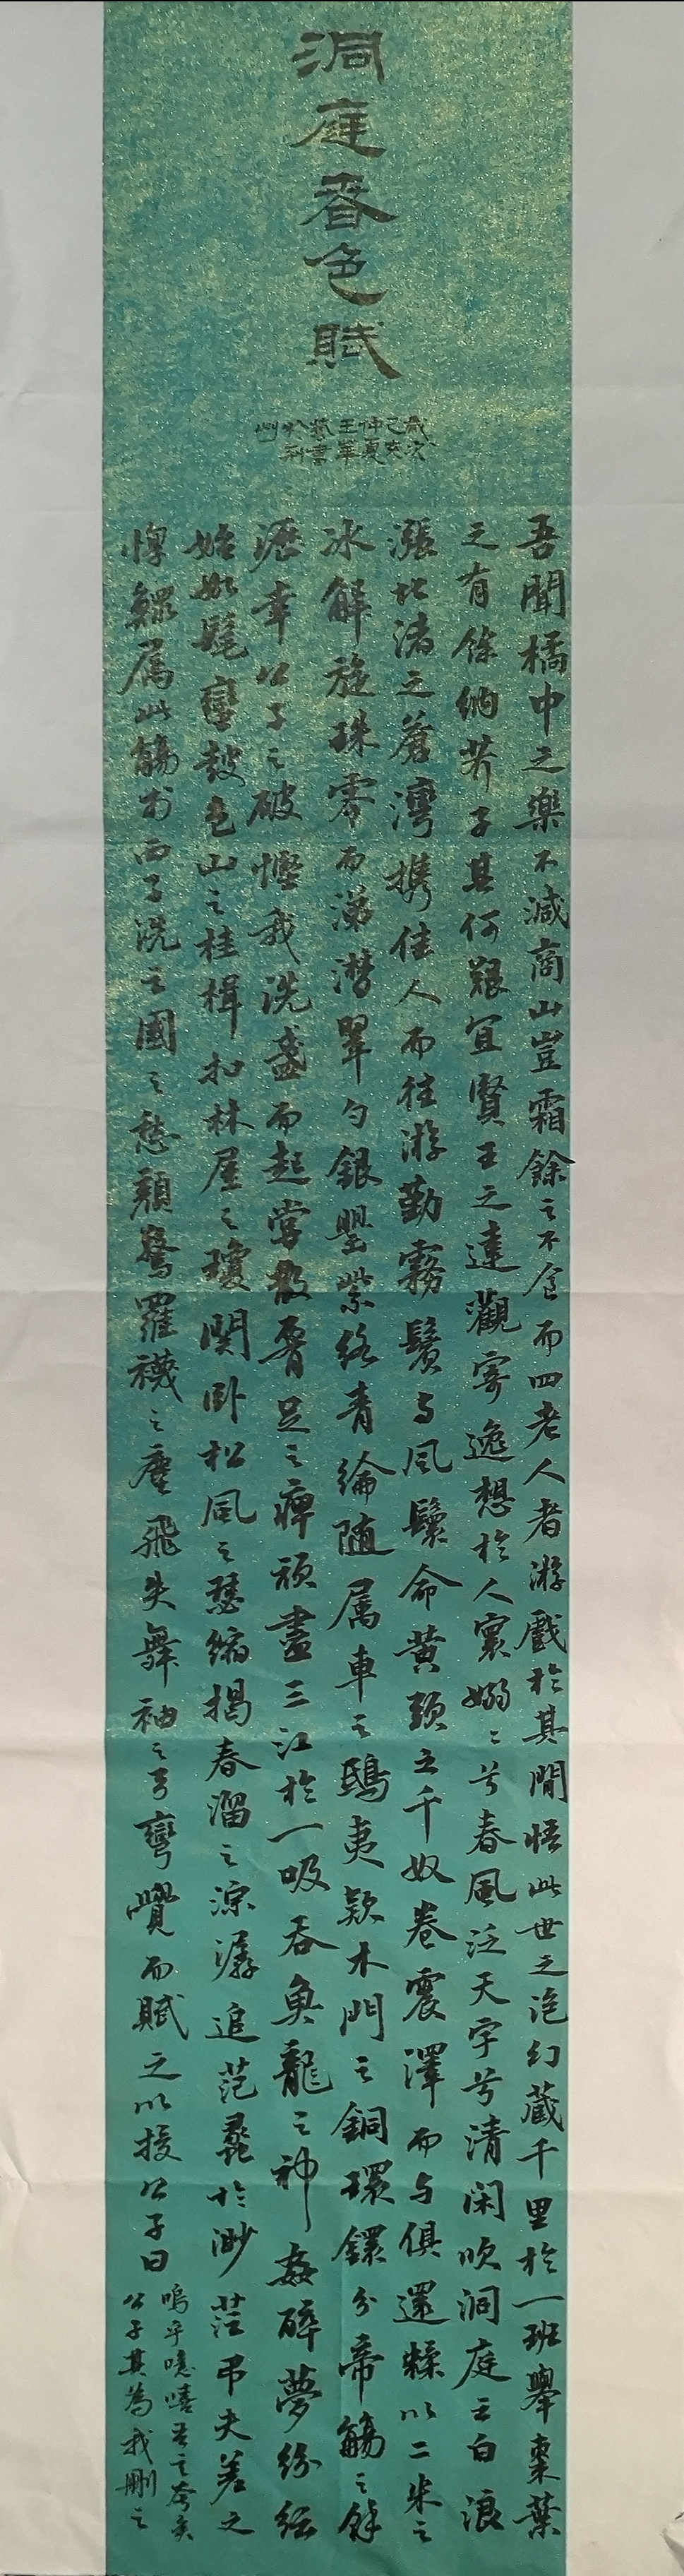 洞庭春色賦
歲次
己亥
仲夏
王華
藝書
於荊
州
吾聞橘中之樂不減商山豈霜餘之不食而四老人者游戲於其間悟此世之泡幻藏千里於一班舉棗葉
之有餘納芥子其何艱宜賢王之達觀寄逸想於人寰嫋嫋兮春風泛天宇兮清閑吹洞庭之白浪
漲北渚之蒼灣携佳人而往游勤霧鬢与風鬟命黃頭之千奴卷震澤而与俱還糅以二米之
冰解旋珠零而涕潸翠勺銀罌紫絡青綸随属車之鴟夷款木門之銅環鏁分帝觴之餘
瀝幸公子之破慳我洗盞而起嘗散腰足之痹頑盡三江於一吸吞魚龍之神姦醉夢紛紜
始如髦蠻鼓包山之桂楫扣林屋之瓊関卧松風之瑟縮揭春溜之淙潺追范蠡於渺茫弔夫差之
惸鰥属此觴於西子洗亡國之愁顏驚羅襪之塵飛失舞袖之弓彎覺而賦之以授公子曰
嗚乎噫嘻吾言夸矣
公子其為我刪之